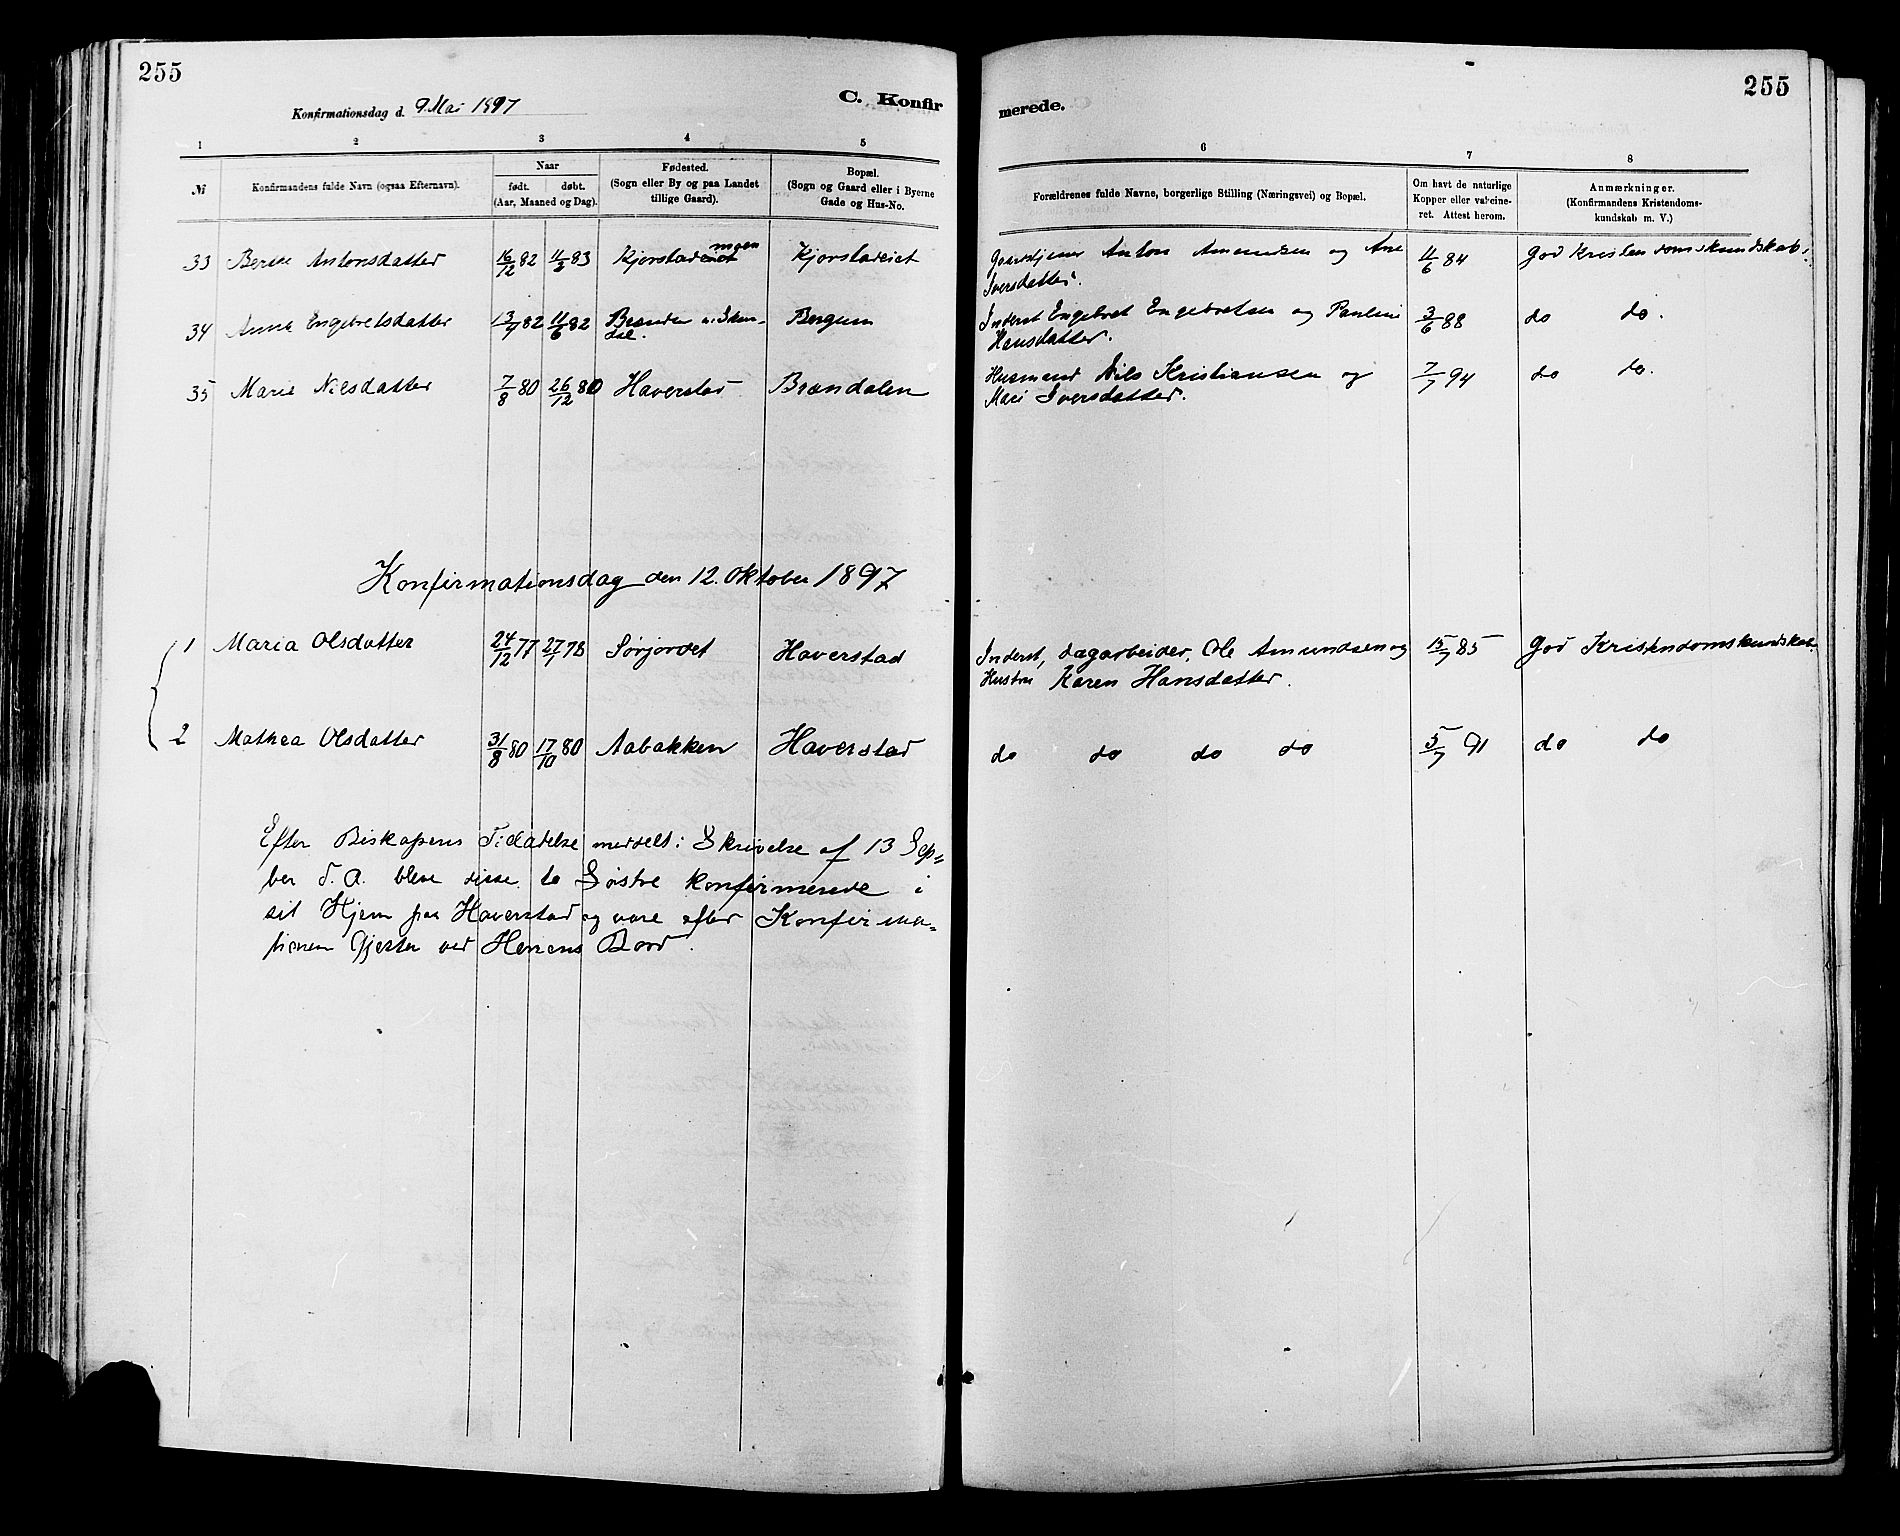 255
Konfirmationsdag d. 9. Mai 1897
C. Konfir
1 2 3 4 5
№ Konfirmandens fulde Navn (ogsaa Efternavn). Naar født. døbt. (Aar, Maaned og Dag). Fødested. (Sogn eller By og paa Landet tillige Gaard). Bopæl. (Sogn og Gaard eller i Byerne Gade og Hus-No.
33 Berthe Antonsdatter 16/12 82 11/2 83 Kjorstad moen Kjorstadeiet
34 Anna Engebretsdatter 13/4 82 11/6 82 Bergum
35 Marie Nilsdatter 7/8 80 26/12 80 Haverstad Brændalen
Konfirmationsdag den 12. Oktober 1897
1 Maria Olsdatter 24/12 77 27/1 78 Sørjordet Haverstad
2 Mathea Olsdatter 31/8 80 17/10 80 Aabakken Haverstad
Efter Biskopens Tilladelse meddelt i Skrivelse af 13 Sep=
ber d. A. bleve disse to Søstre konfirmerede i
sit Hjem paa Haverstad og vare efter Konfirma=
tionen Gjester ved Herrens Bord.
255
merede.
6 7 8
Forældrenes fulde Navne, borgerlige Stilling (Næringsvei) og Bopæl. Om havt de naturlige Kopper eller vaccineret. Attest herom. Anmærkninger. (Konfirmandens Kristendomskundskab m. V.)
Anton Amundsen og Ane 11/6 84 God Kristendomskundskab
Iversdatter.
Inderst Engebret Engebretsen og Pauline 3/6 88 do do.
Hansdatter.
Husmand Nils Kristiansen og 7/7 94 do do.
Mari Iversdatter.
Inderst, dagarbeider, Ole Amundsen og 15/7 85 God Kristendomskundskab
Hustru Karen Hansdatter.
do do do do 5/7 91 do do